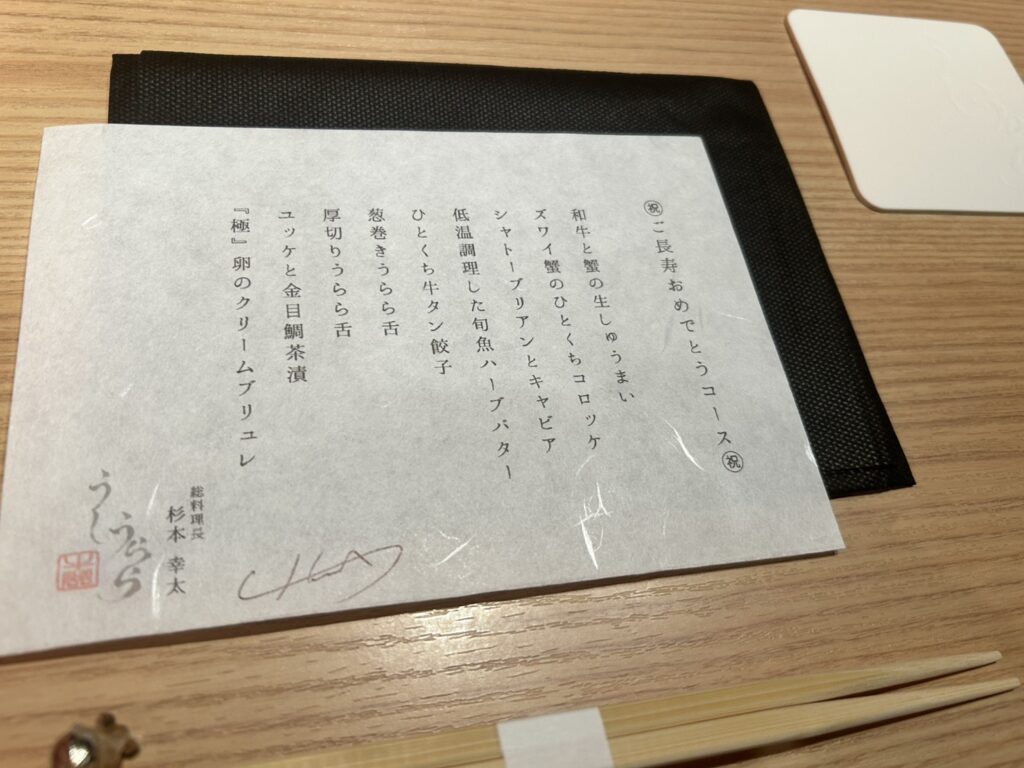 ㊗ご長寿おめでとうコース㊗
和牛と蟹の生しゅうまい
ズワイ蟹のひとくちコロッケ
シャトーブリアンとキャビア
低温調理した旬魚ハーブバター
ひとくち牛タン餃子
葱巻きうらら舌
厚切りうらら舌
ユッケと金目鯛茶漬
『極』卵のクリームブリュレ
総料理長
杉本 幸太
うし
うらら